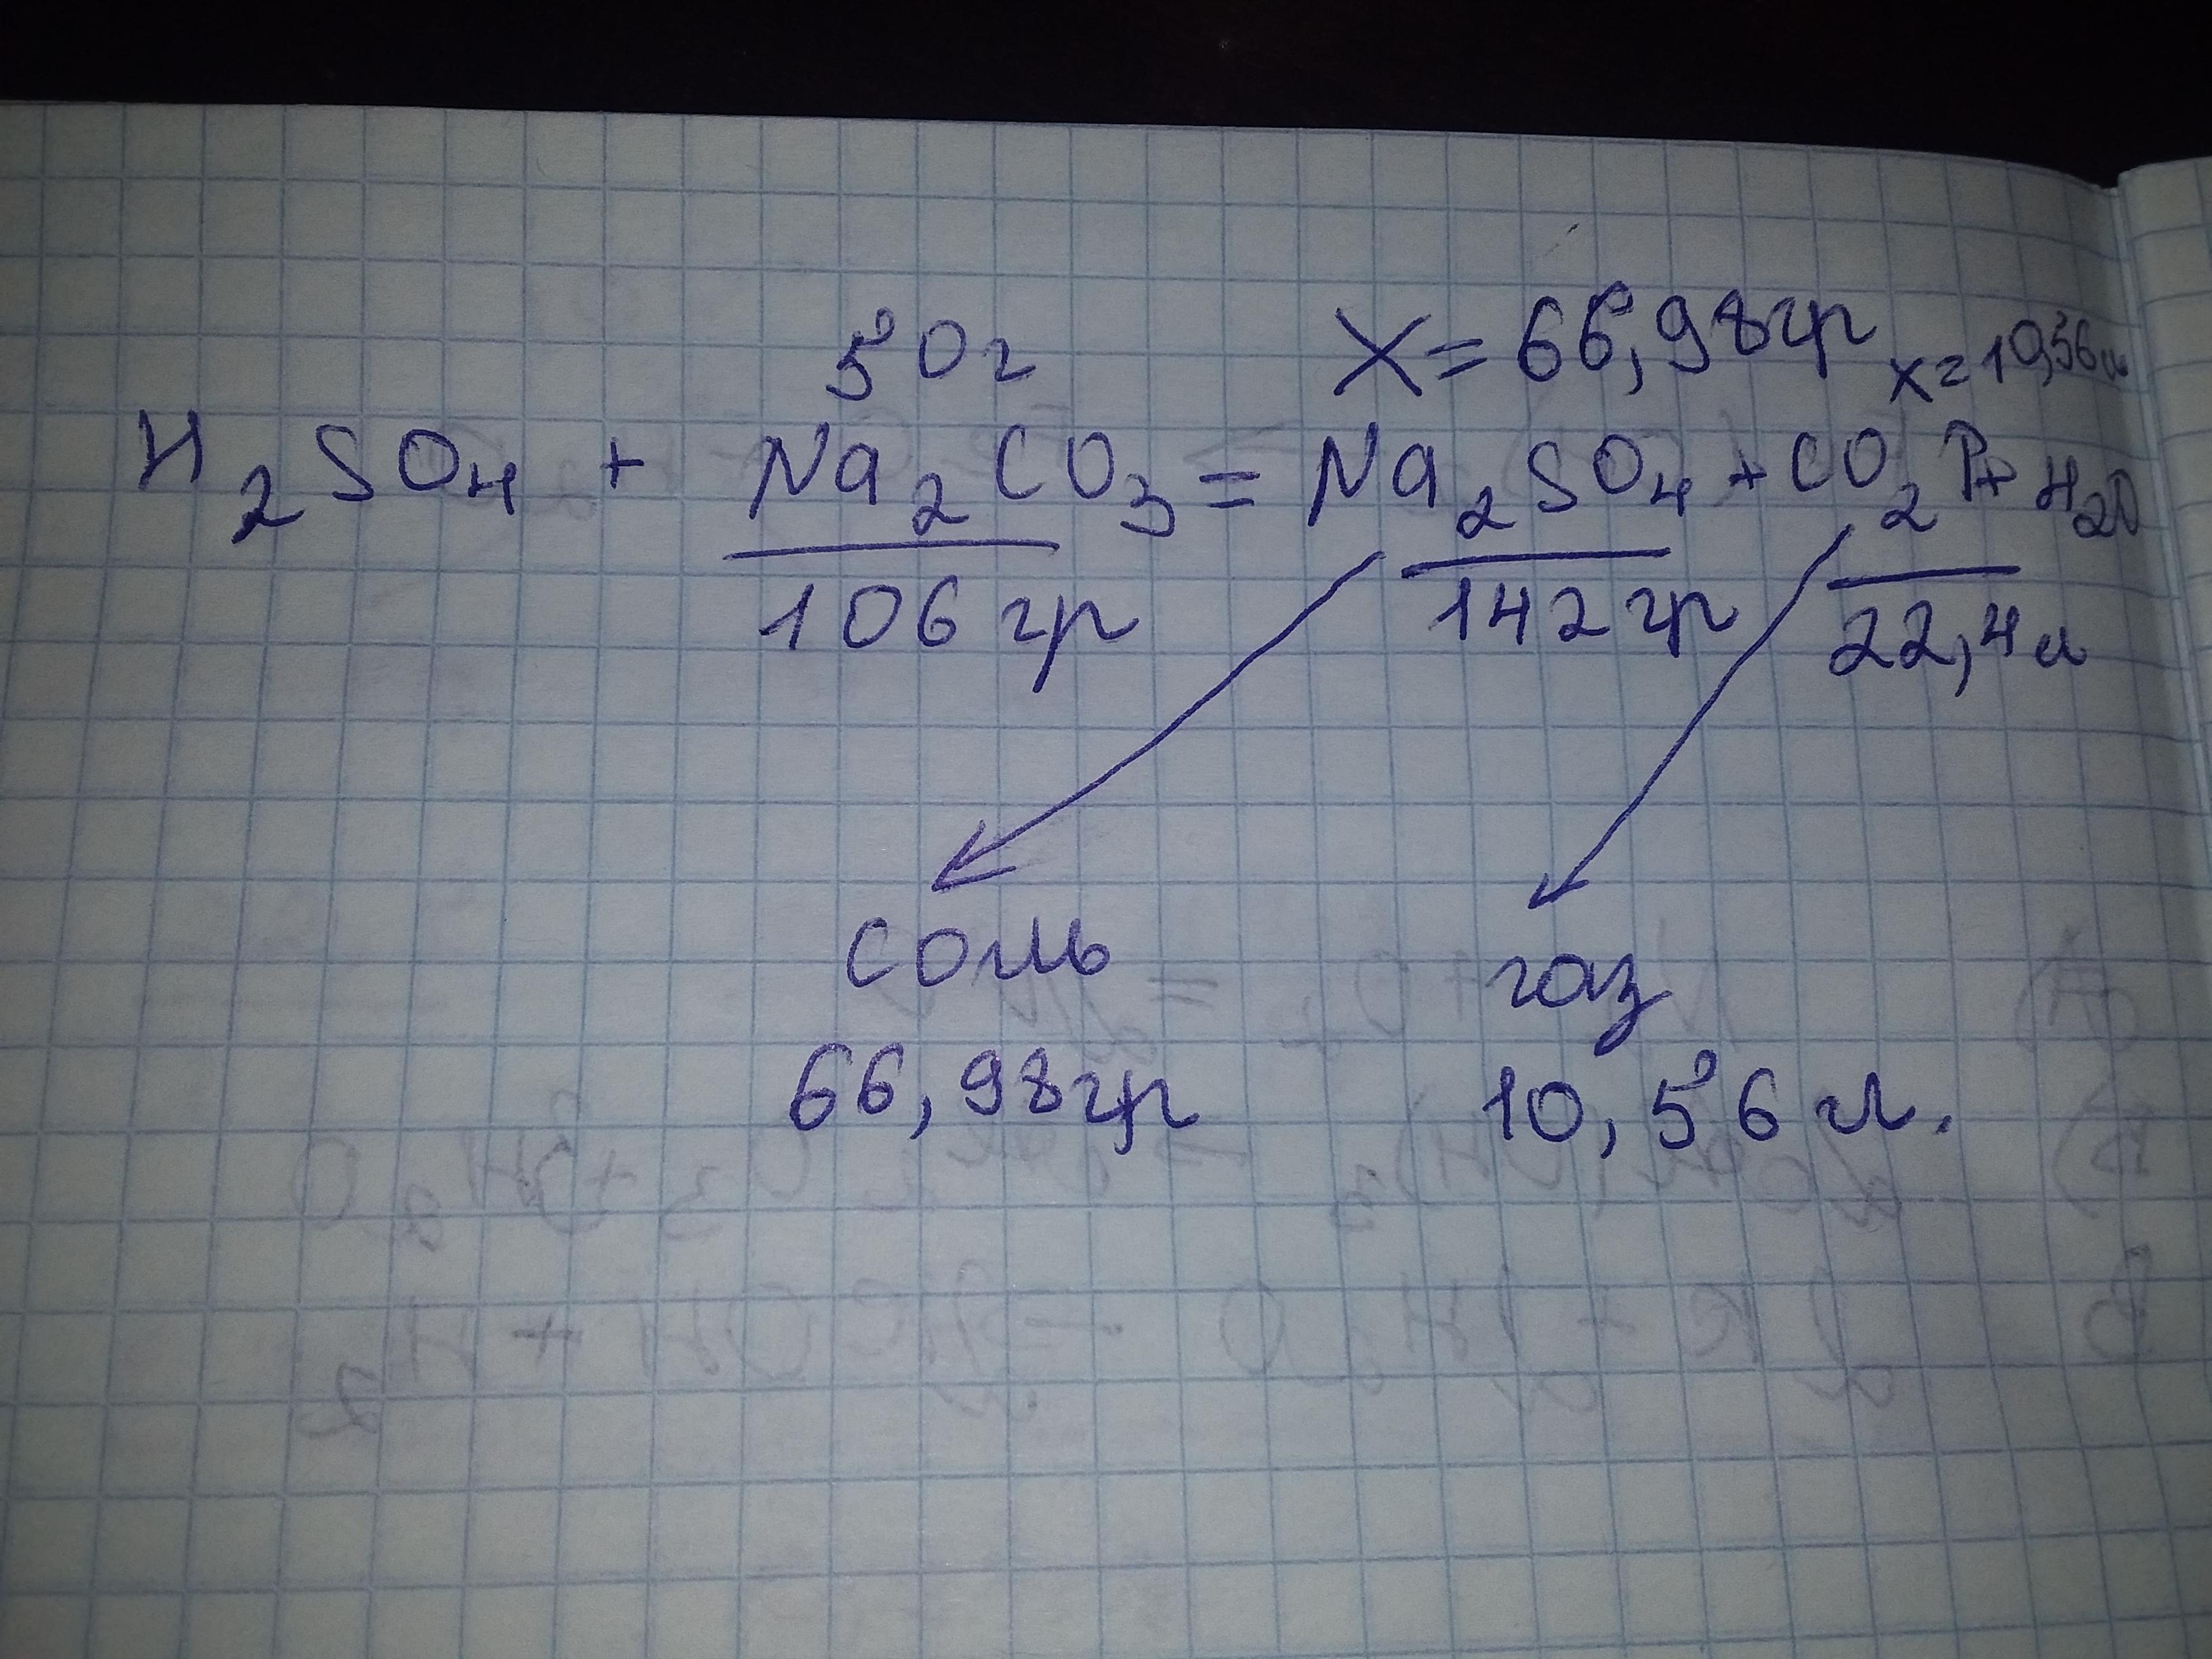 50г X=66,98гр x=10,56л
H2SO4 + Na2CO3 = Na2SO4 + CO2↑ + H2O
106гр 142гр 22,4л
соль газ
66,98гр 10,56 л.